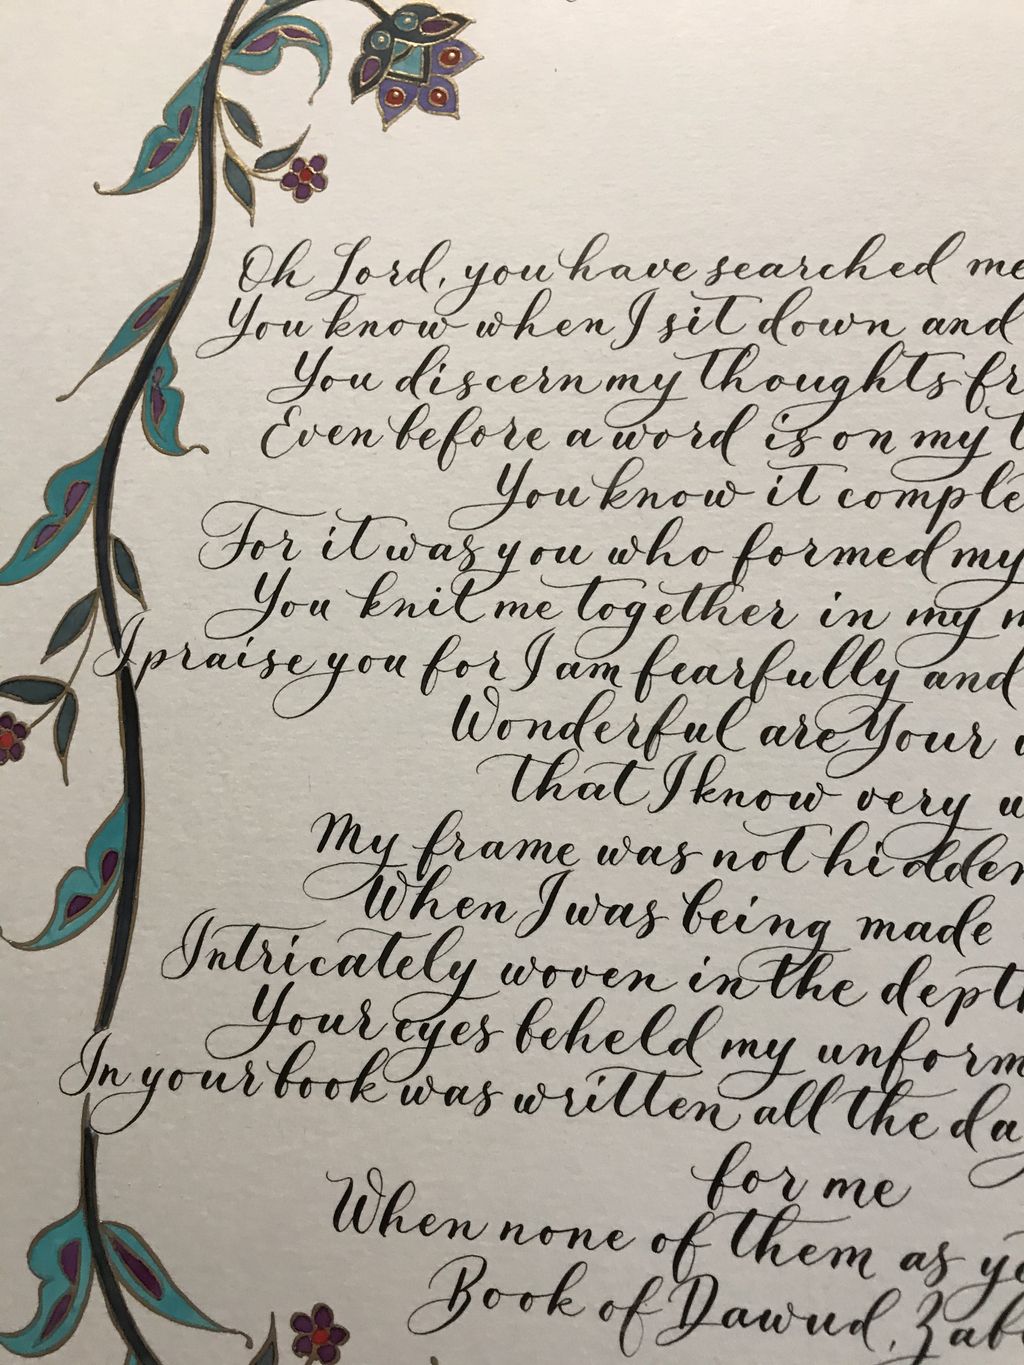 Oh Lord, you have searched me
You know when I sit down and
You discern my thoughts fr
Even before a word is on my t
You know it comple
For it was you who formed my
You knit me together in my m
I praise you for I am fearfully and
Wonderful are Your
that I know very w
My frame was not hidden
When I was being made
Intricately woven in the depth
Your eyes beheld my unform
In your book was written all the da
for me
When none of them as ye
Book of Dawud, Zab